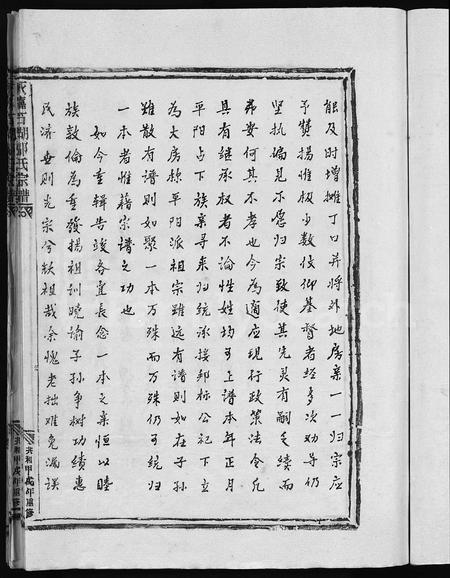 能及时增摊丁口并将外地房亲一一归宗应
予赞扬惟极少数伎仰基督者经多次劝导仍
坚执偏见不愿归宗致使其先灵有嗣乏续而
弗安何其不孝也今为适应现行政策法令凡
具有继承权者不论性姓均可上谱本年正月
平阳占下族亲寻来归统承接邦标公记下立
为大房按平阳派祖宗虽远有谱则如在子孙
虽散有谱则如聚一本万殊而万殊仍可统归
一本者惟籍宗谱之功也
如今重辑告竣各宜长念一本之亲恒以睦
族敦伦为重发扬祖训晓谕子孙争树功绩惠
民济世则光宗兮猷祖哉余愧老拙难免漏误
永嘉百湖郭氏宗谱
共和甲戌年重修
共和甲戌年重修